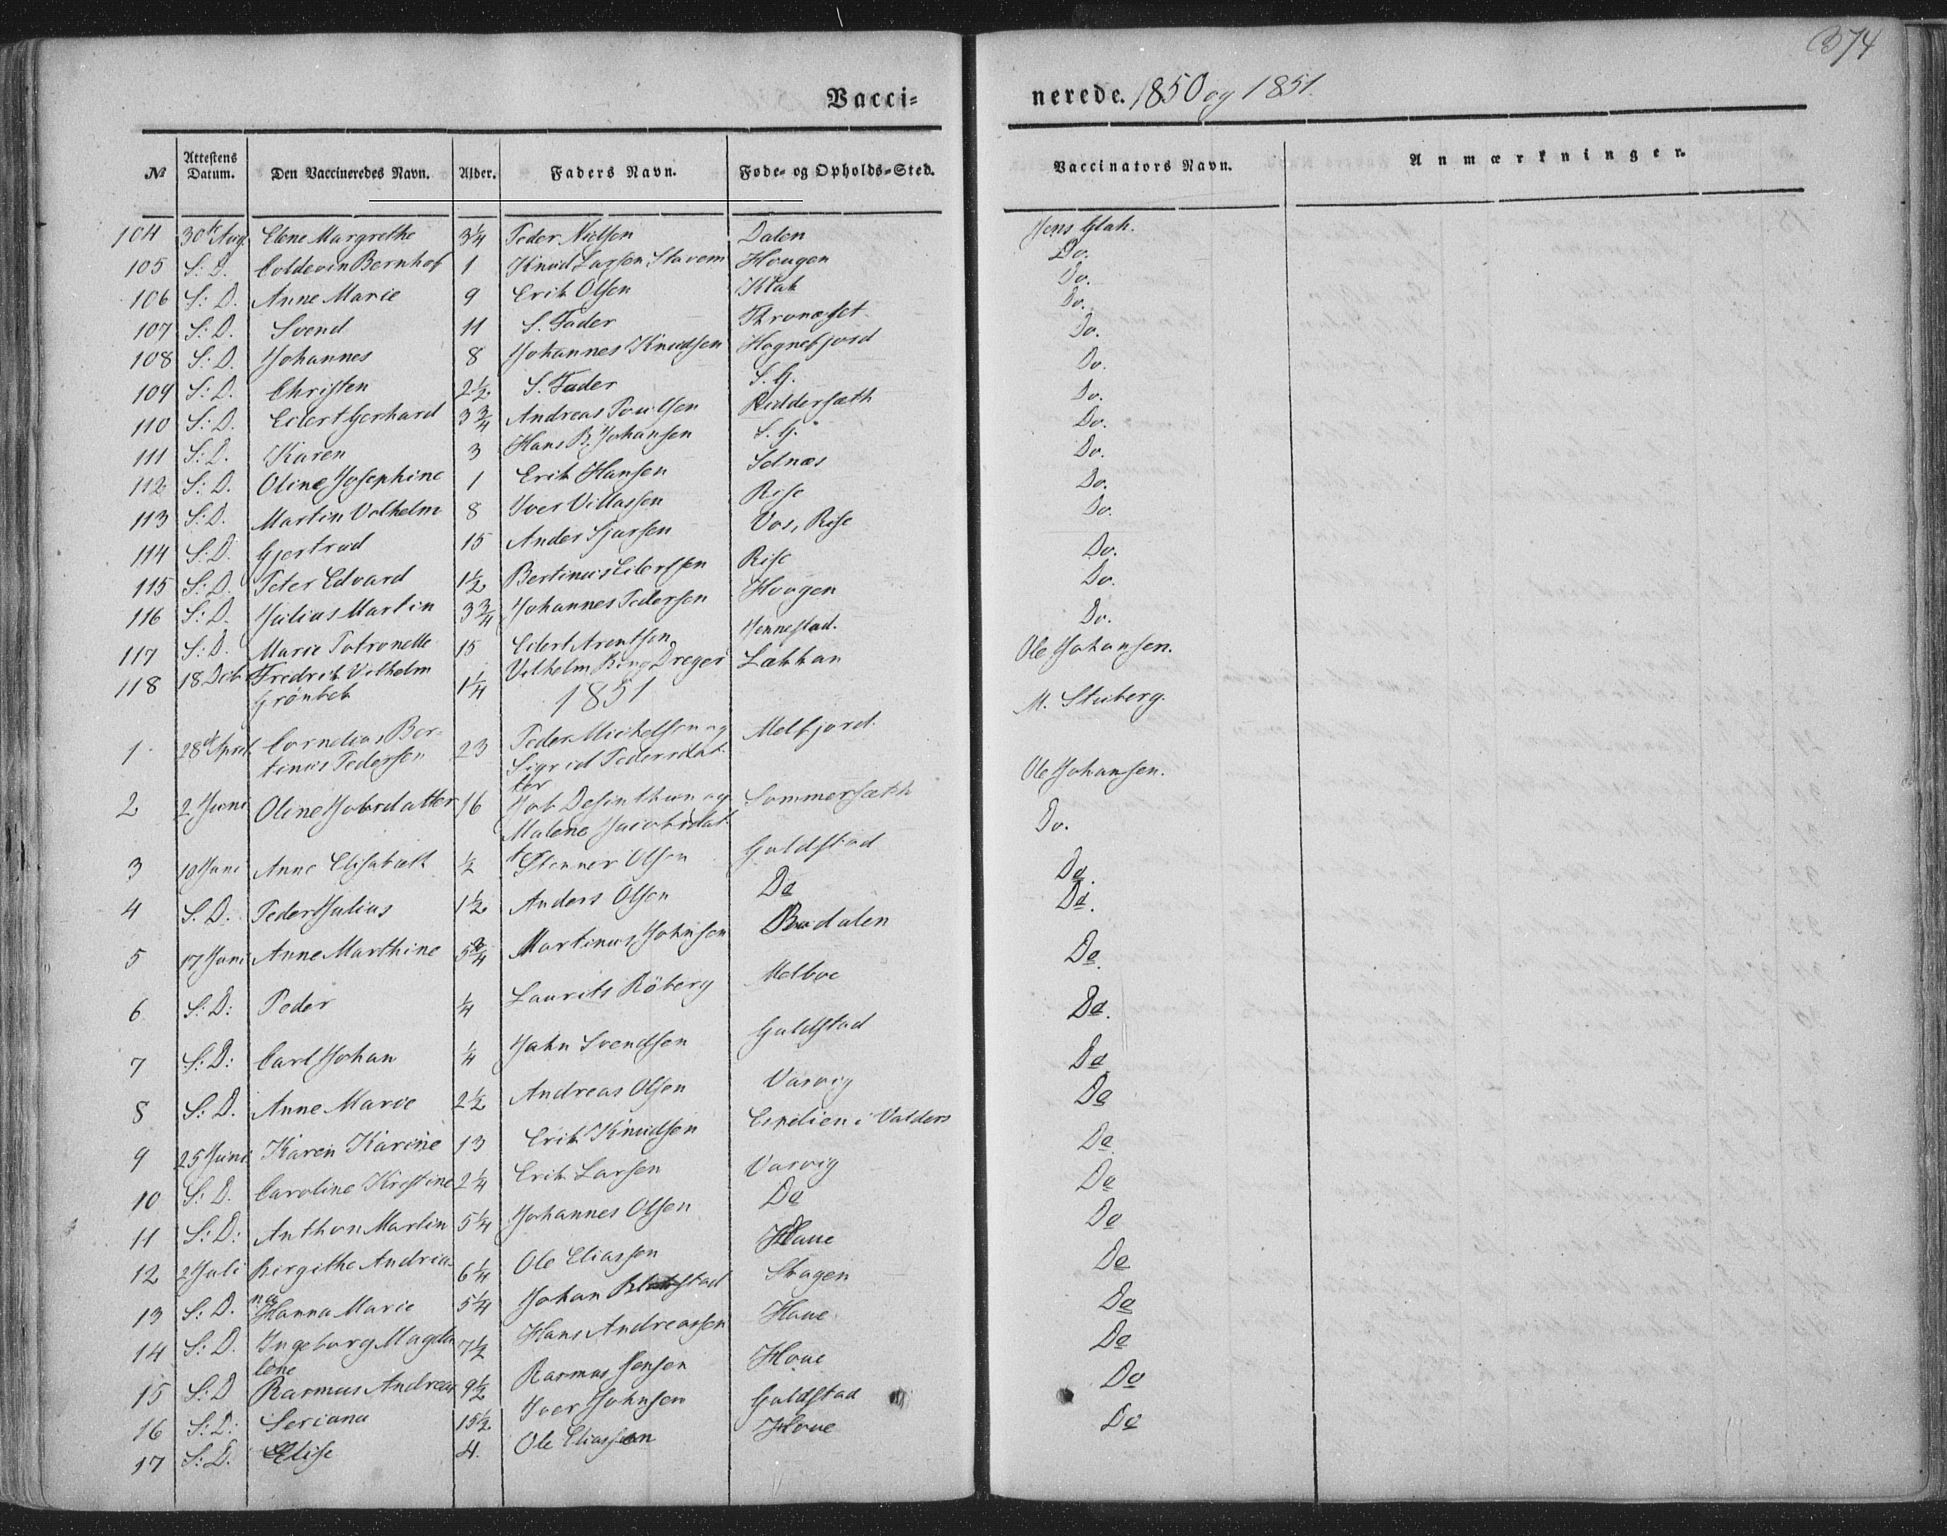 374
Vacci= nerede. 1850 og 1851.
№ Attestens Datum. Den Vaccineredes Navn. Alder. Faders Navn. Føde= og Opholds=Sted. Vaccinators Navn. Anmærkninger.
104 30te Aug. Elene Margrethe 3 1/4 Peder Nielsen Dalen Jens Glak.
105 S: D. Coldevin Bernhof 1 Knud Larsen Stavem Hougen Do.
106 S: D. Anne Marie 9 Erik Olsen Klak Do.
107 S: D. Svend 11 S. Fader Thronæset Do.
108 S: D. Johannes 8 Johannes Knudsen Hognefjord Do.
109 S: D. Christen 2 1/2 S. Fader S. G. Do.
110 S: D. Eilert Gerhard 3 3/4 Andreas Poulsen Riddersæth Do.
111 S: D. Karen 3 Hans B. Johansen S. G. Do.
112 S: D. Oline Josephine 1 Erik Hansen Selnæs Do.
113 S: D. Martin Volhelm 8 Iver Villassen Rise Do.
114 S: D. Gjertrud 15 Ander Sjursen Vos, Rise Do.
115 S: D. Peter Edvard 1 1/2 Bertinus Eilertsen Rise Do.
116 S: D. Julius Martin 3 3/4 Johannes Pedersen Hougen Do.
117 S: D. Marie Petronelle 15 Eilert Arentsen Jennestad. Do.
118 18 Fredrik Vilhelm 1 1/4 Vilhelm Bing Dreyer Lækkan Ole Johansen.
Grønbek
1851
1 28de April Cornelius Ber= 23 Peder Michelsen og Melfjord M. Stuberg.
tinus Pedersen Sigrid Pedersdat
ter
2 2 Juni Oline Jobsdatter 16 Job og Sommersæth Ole Johansen.
Malene Jacobsdat
3 10 Juni Anne Elisabeth 1/2 Stenner Olsen Guldstad Do.
4 S. D. Peder Julius 1 1/2 Anders Olsen Do Do.
5 17 Juni Anne Marthine 5 3/4 Martinus Johnsen Budalen Do.
6 S: D: Peder 1/4 Laurits Röberg Melboe Do.
7 S: D: Carl Johan 1/4 John Svendsen Guldstad Do.
8 S: D. Anne Marie 2 1/2 Andreas Olsen Varvig Do
9 25 Juni Karen Karine 13 Erik Knudsen Espelien i Valders Do
10 S: D. Caroline Kristine 2 1/4 Erik Larsen Varvig Do
11 S: D: Anthon Martin 5 1/4 Johannes Olsen Do Do
12 2 Juli Birgithe Andrea= 6 1/4 Ole Eliassen Houe Do
na
13 S: D. Hanna Marie 5 1/4 Johan Stagen Do
14 S: D. Ingeborg Magda 7 1/2 Hans Andreassen Houe Do
lene
15 S: D Rasmus Andreas 9 1/2 Rasmus Jensen Houe Do
16 S: D: Seriana 15 1/2 Iver Johnsen Guldstad Do
17 S: D. Elise 4. Ole Eliassen Houe Do